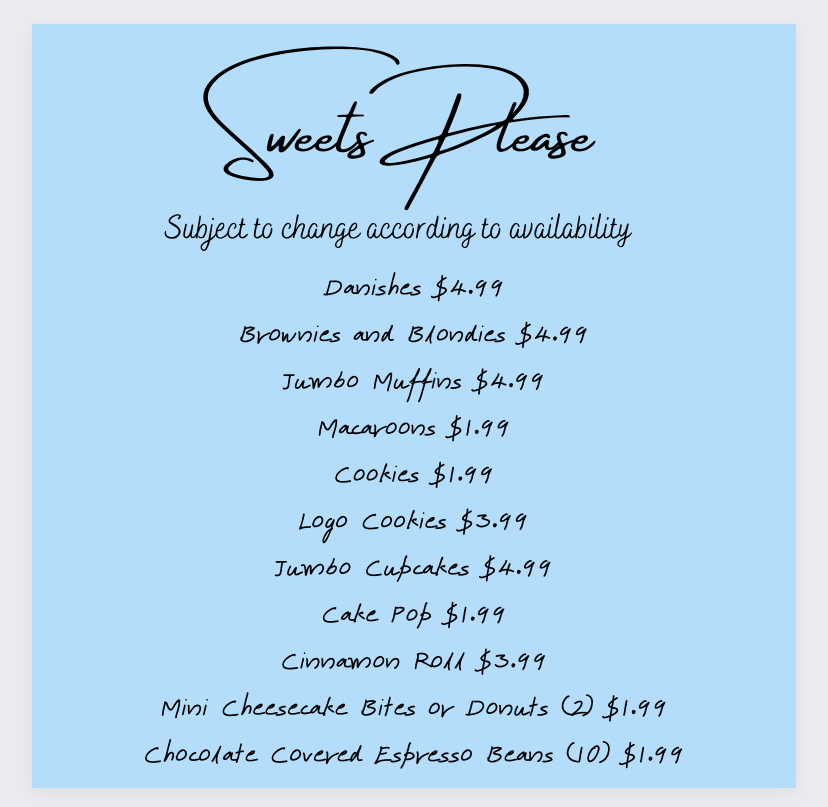 Sweets Please
Subject to change according to availability
Danishes $4.99
Brownies and Blondies $4.99
Jumbo Muffins $4.99
Macaroons $1.99
Cookies $1.99
Logo Cookies $3.99
Jumbo Cupcakes $4.99
Cake Pop $1.99
Cinnamon Roll $3.99
Mini Cheesecake Bites or Donuts (2) $1.99
Chocolate Covered Espresso Beans (10) $1.99